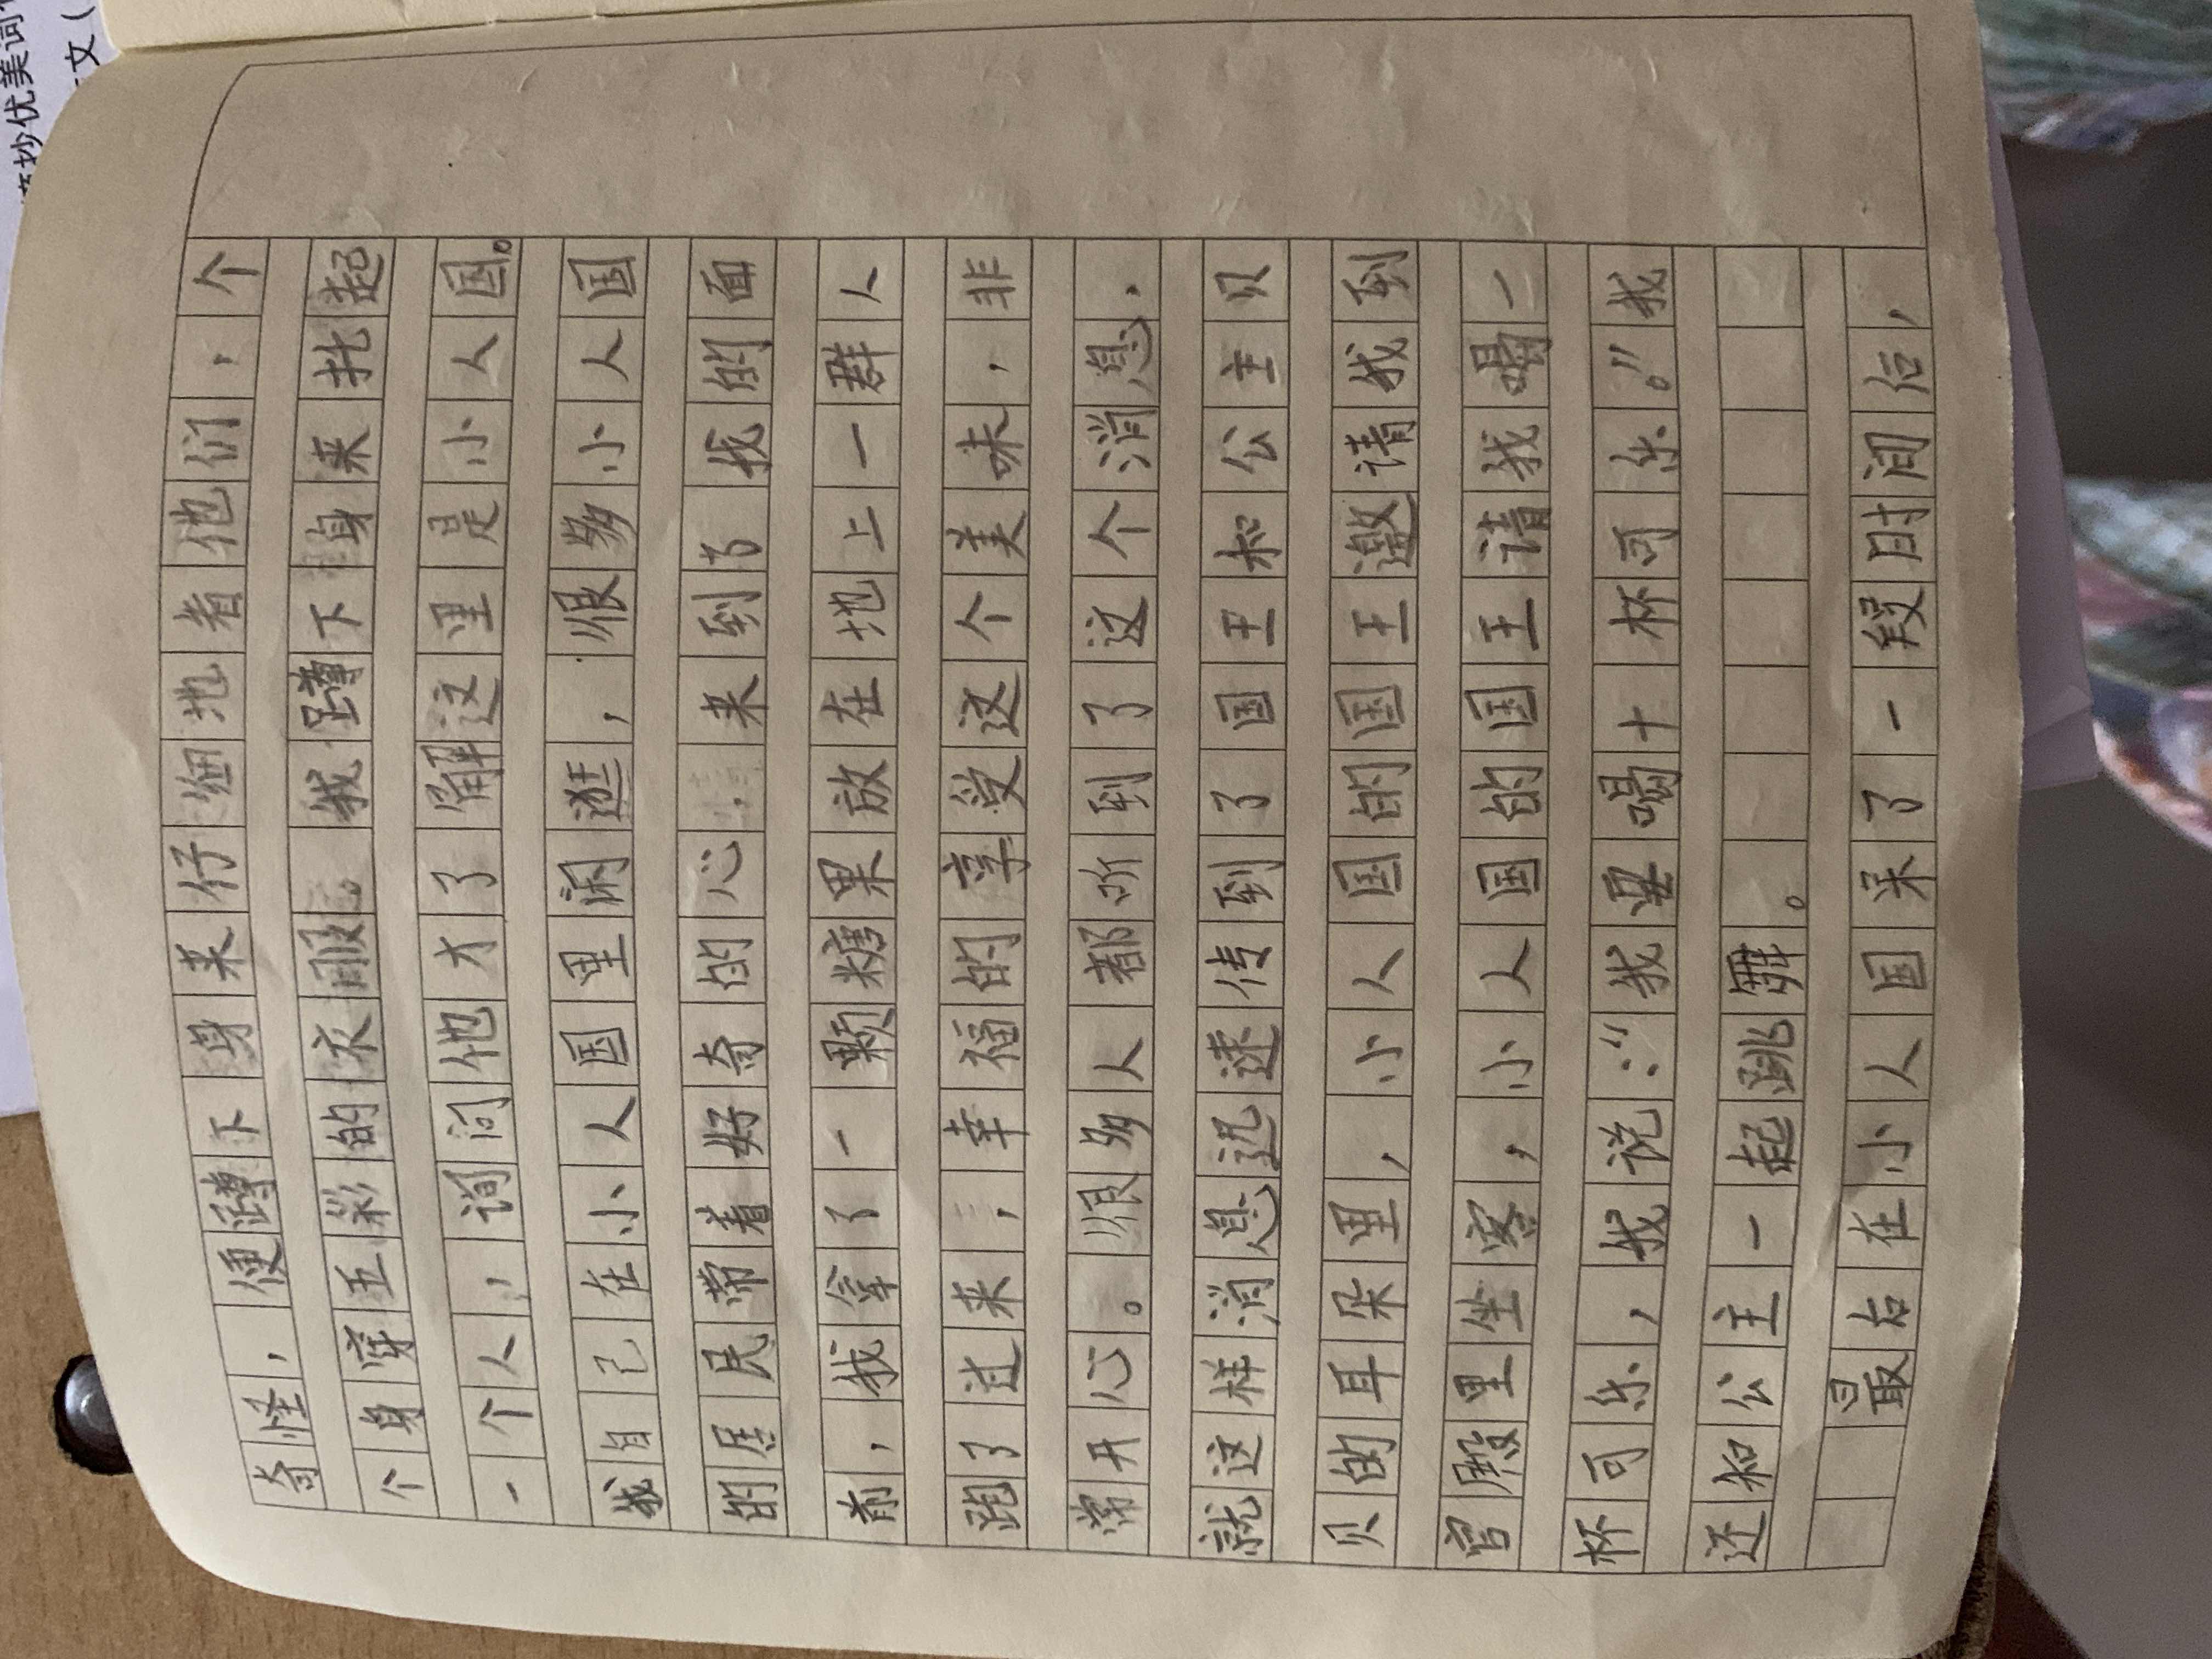 摘抄优美词
文（
奇怪，便蹲下身来仔细地看他们，个
个身穿五彩的衣服。我蹲下身来托起
一个人，询问他才了解这里是小人国。
我自己在小人国里闲逛，很多小人国
的居民带着好奇的心来到了我的面
前，我拿了一颗糖果放在地上一群人
跑了过来，幸福的享受这个美味，非
常开心。很多人都听到了这个消息，
就这样消息迅速传到了国王和公主贝
贝的耳朵里，小人国的国王邀请我到
官殿里坐客，小人国的国王请我喝一
杯可乐，我说：“我要喝十杯可乐。”我
还和公主一起跳舞。
最右在小人国呆了一段时间后，